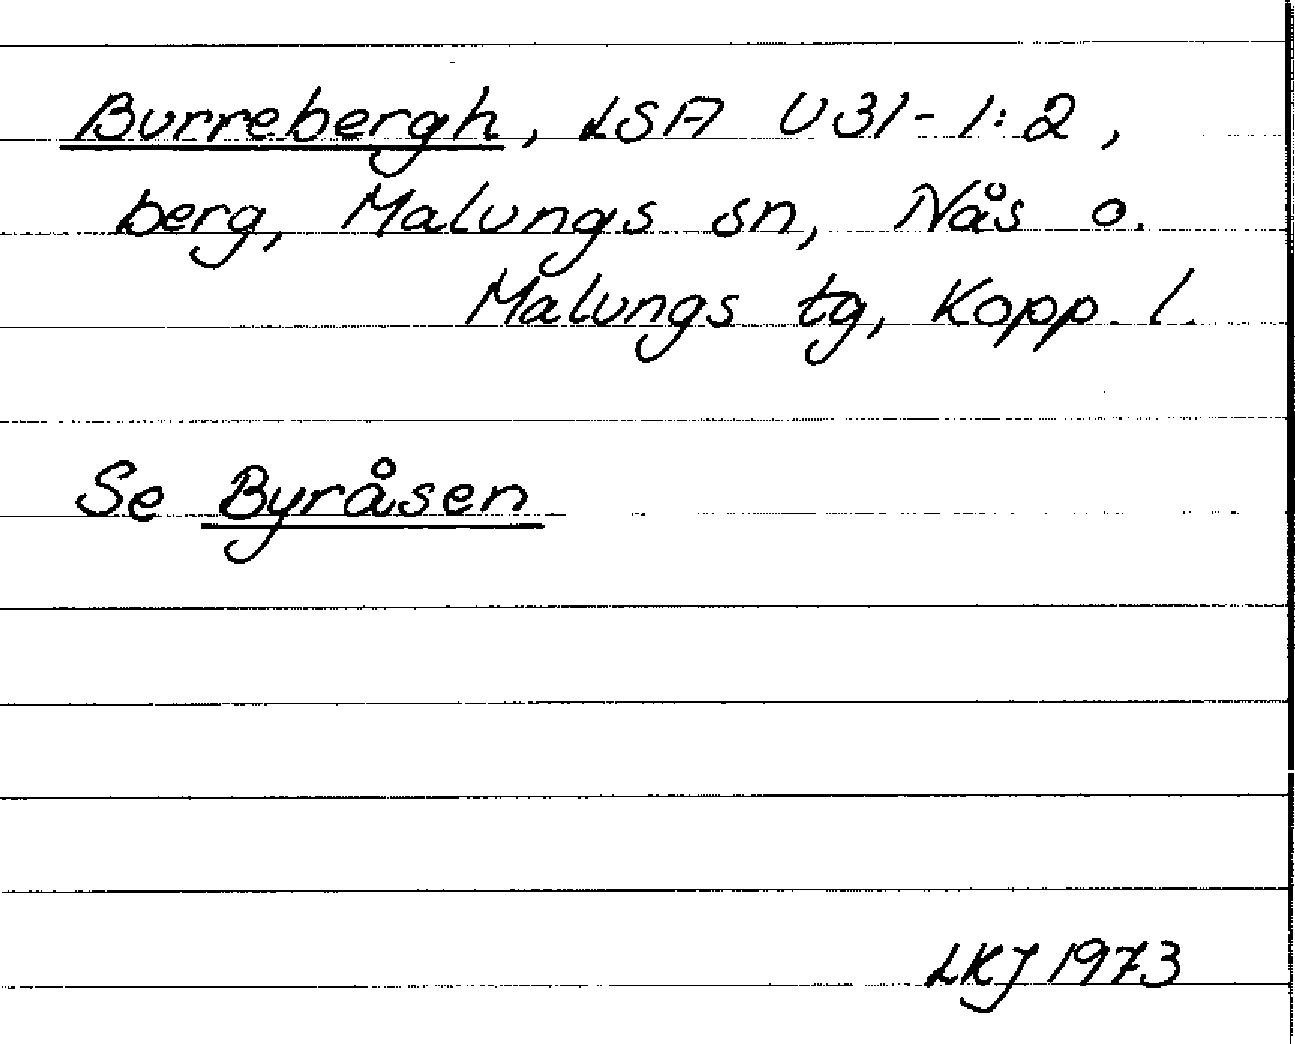 Burrebergh, LSA U31-1:2,
berg, Malungs sn, Nås o.
Malungs tg, Kopp. l.
Se Byråsen
LKJ 1973